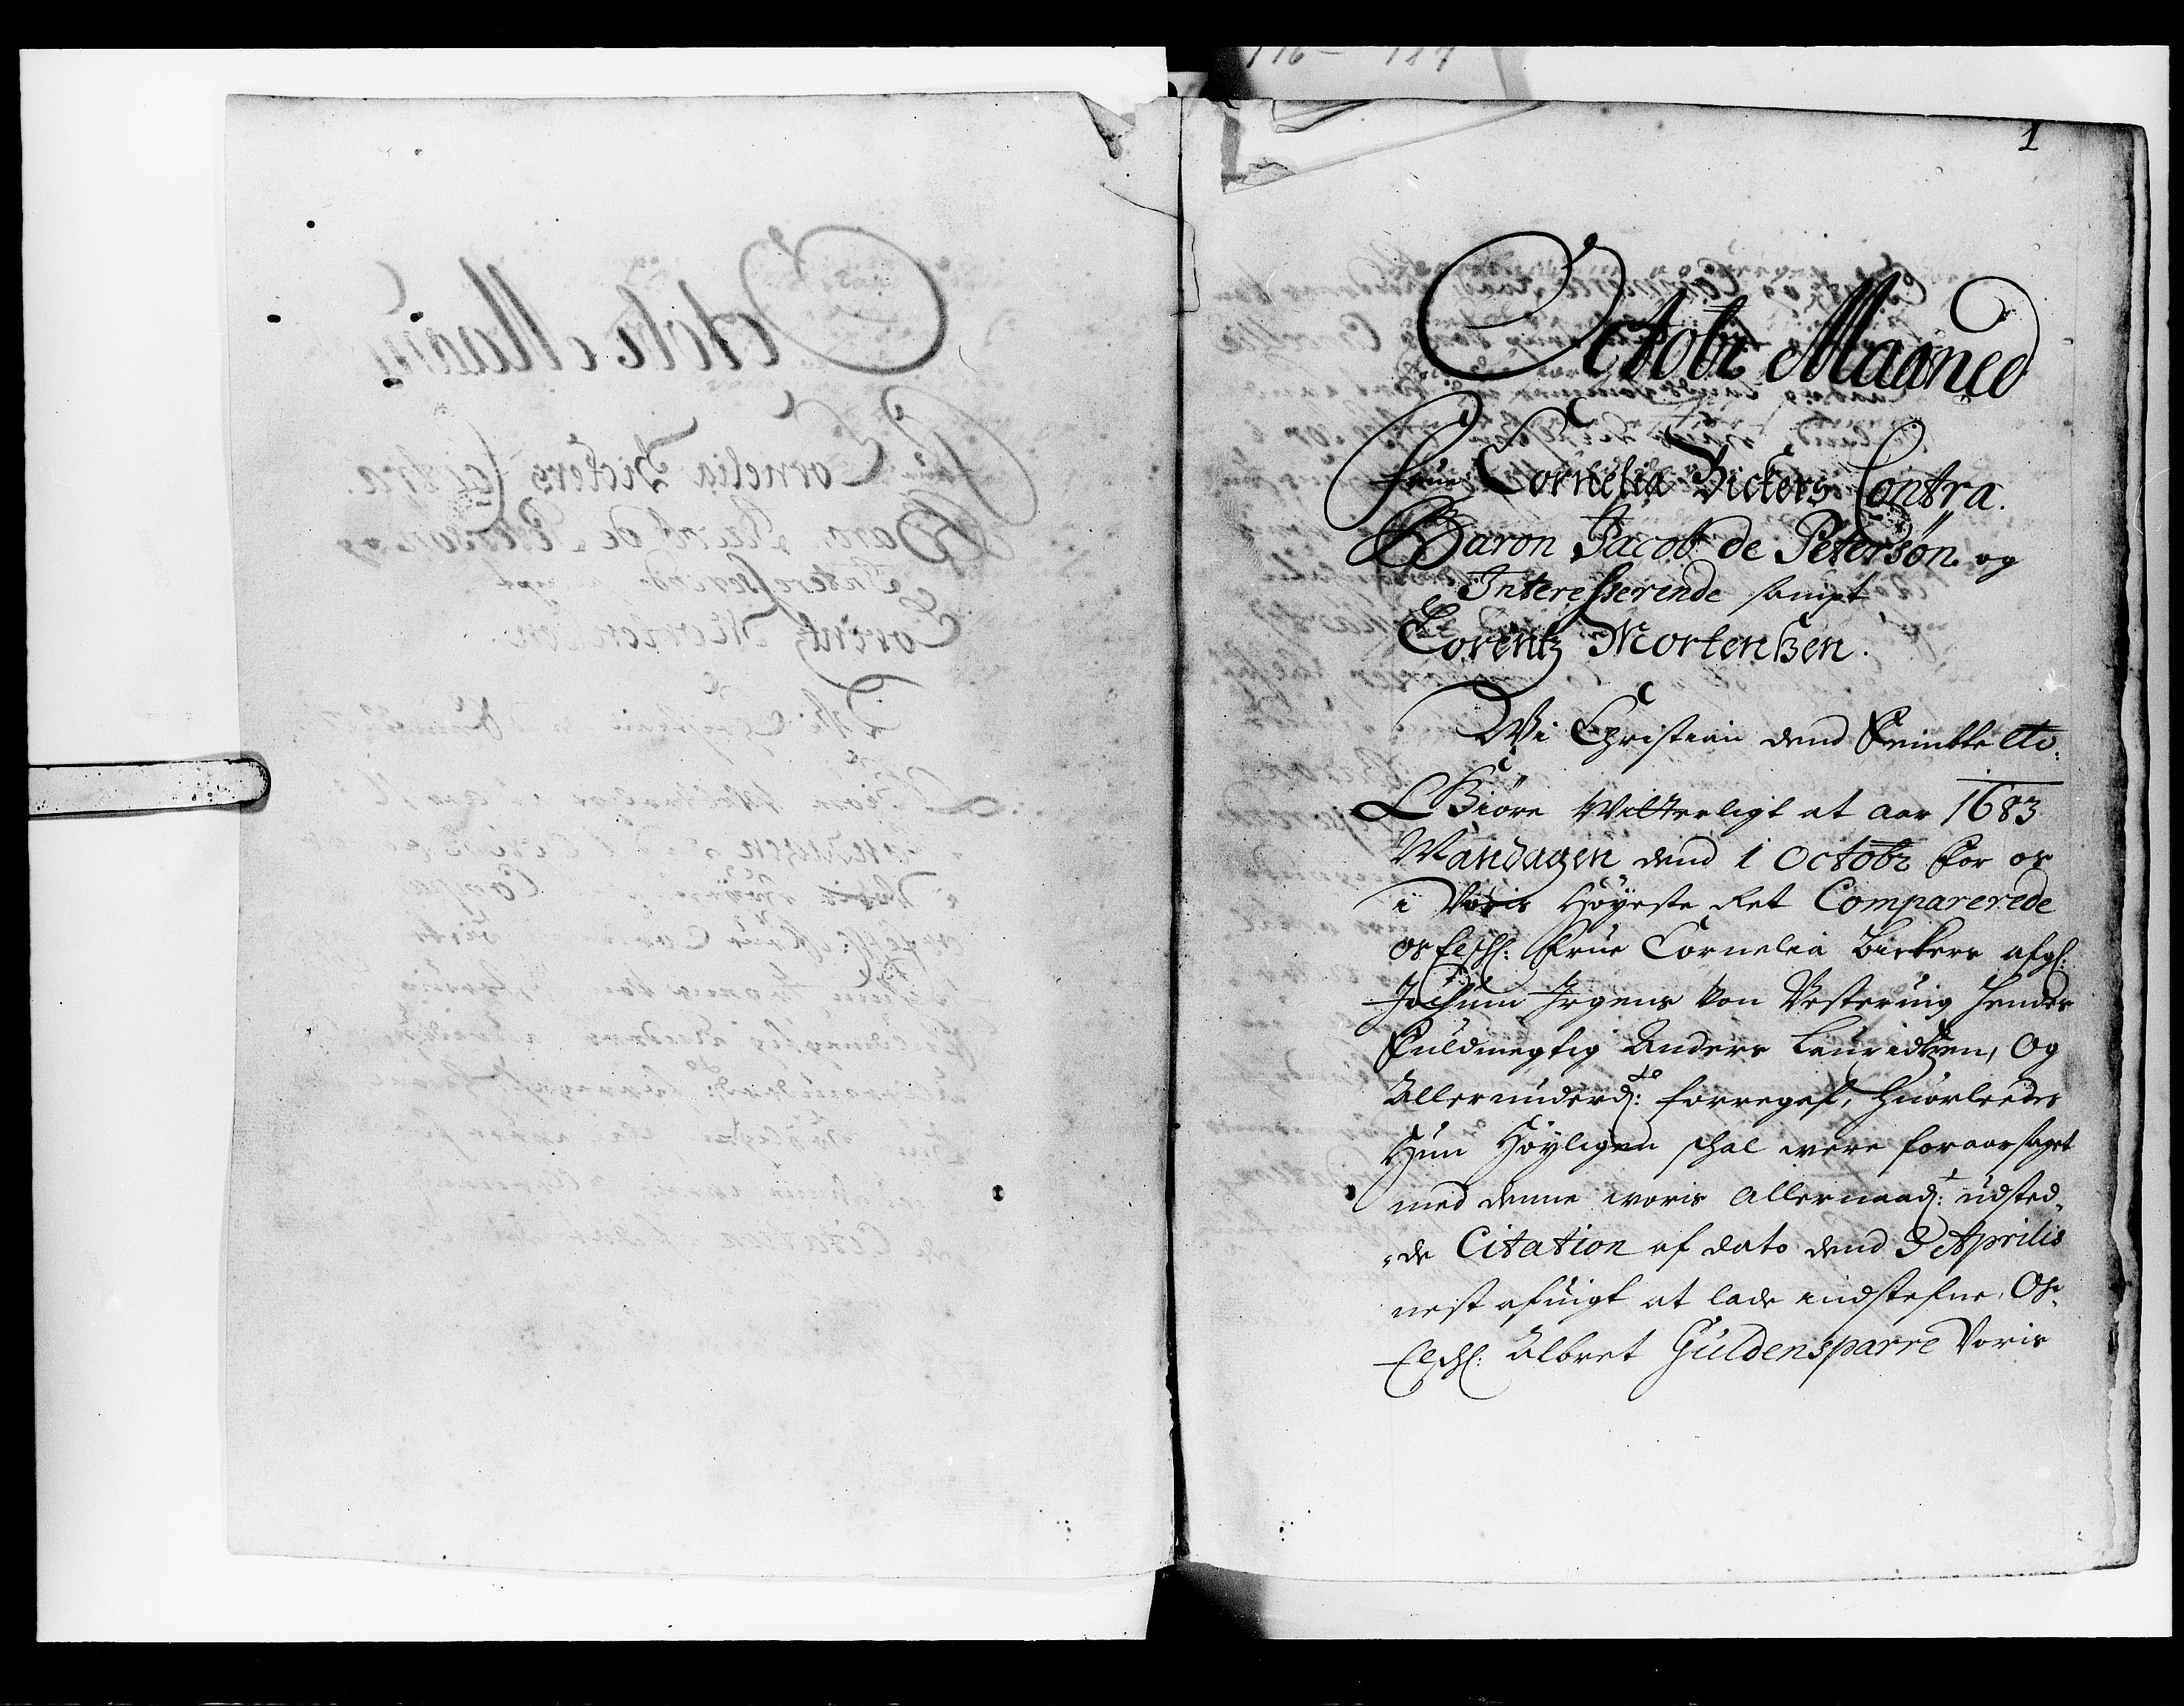 1
Octobr Maaned
Frue Cornelia Bickers Contra.
Baron Jacob de Petersøn og
Interesserende sampt
Lorentz Mortensen.
Wi Christian dend Femtte etc:
Giøre Witterligt at aar 1683
Mandagen dend 1 Octobr for os
i Voris Høyeste Ret Comparerede
os Elschl: Frue Cornelia Bickers afgl:
Jochum Irgens Von Westervig hendes
Fuldmegtig Anders Lauridtzen, Og
Allerunderd:ste forregaf, huorledes
Hun Høyligen schal were foraarsaget
med denne woris Allernaad:t udsted„
„de Citation af dato dend 3 Aprilis
nest afvigt at lade indstefne, Os
Elschl: Albret Guldensparre Voris